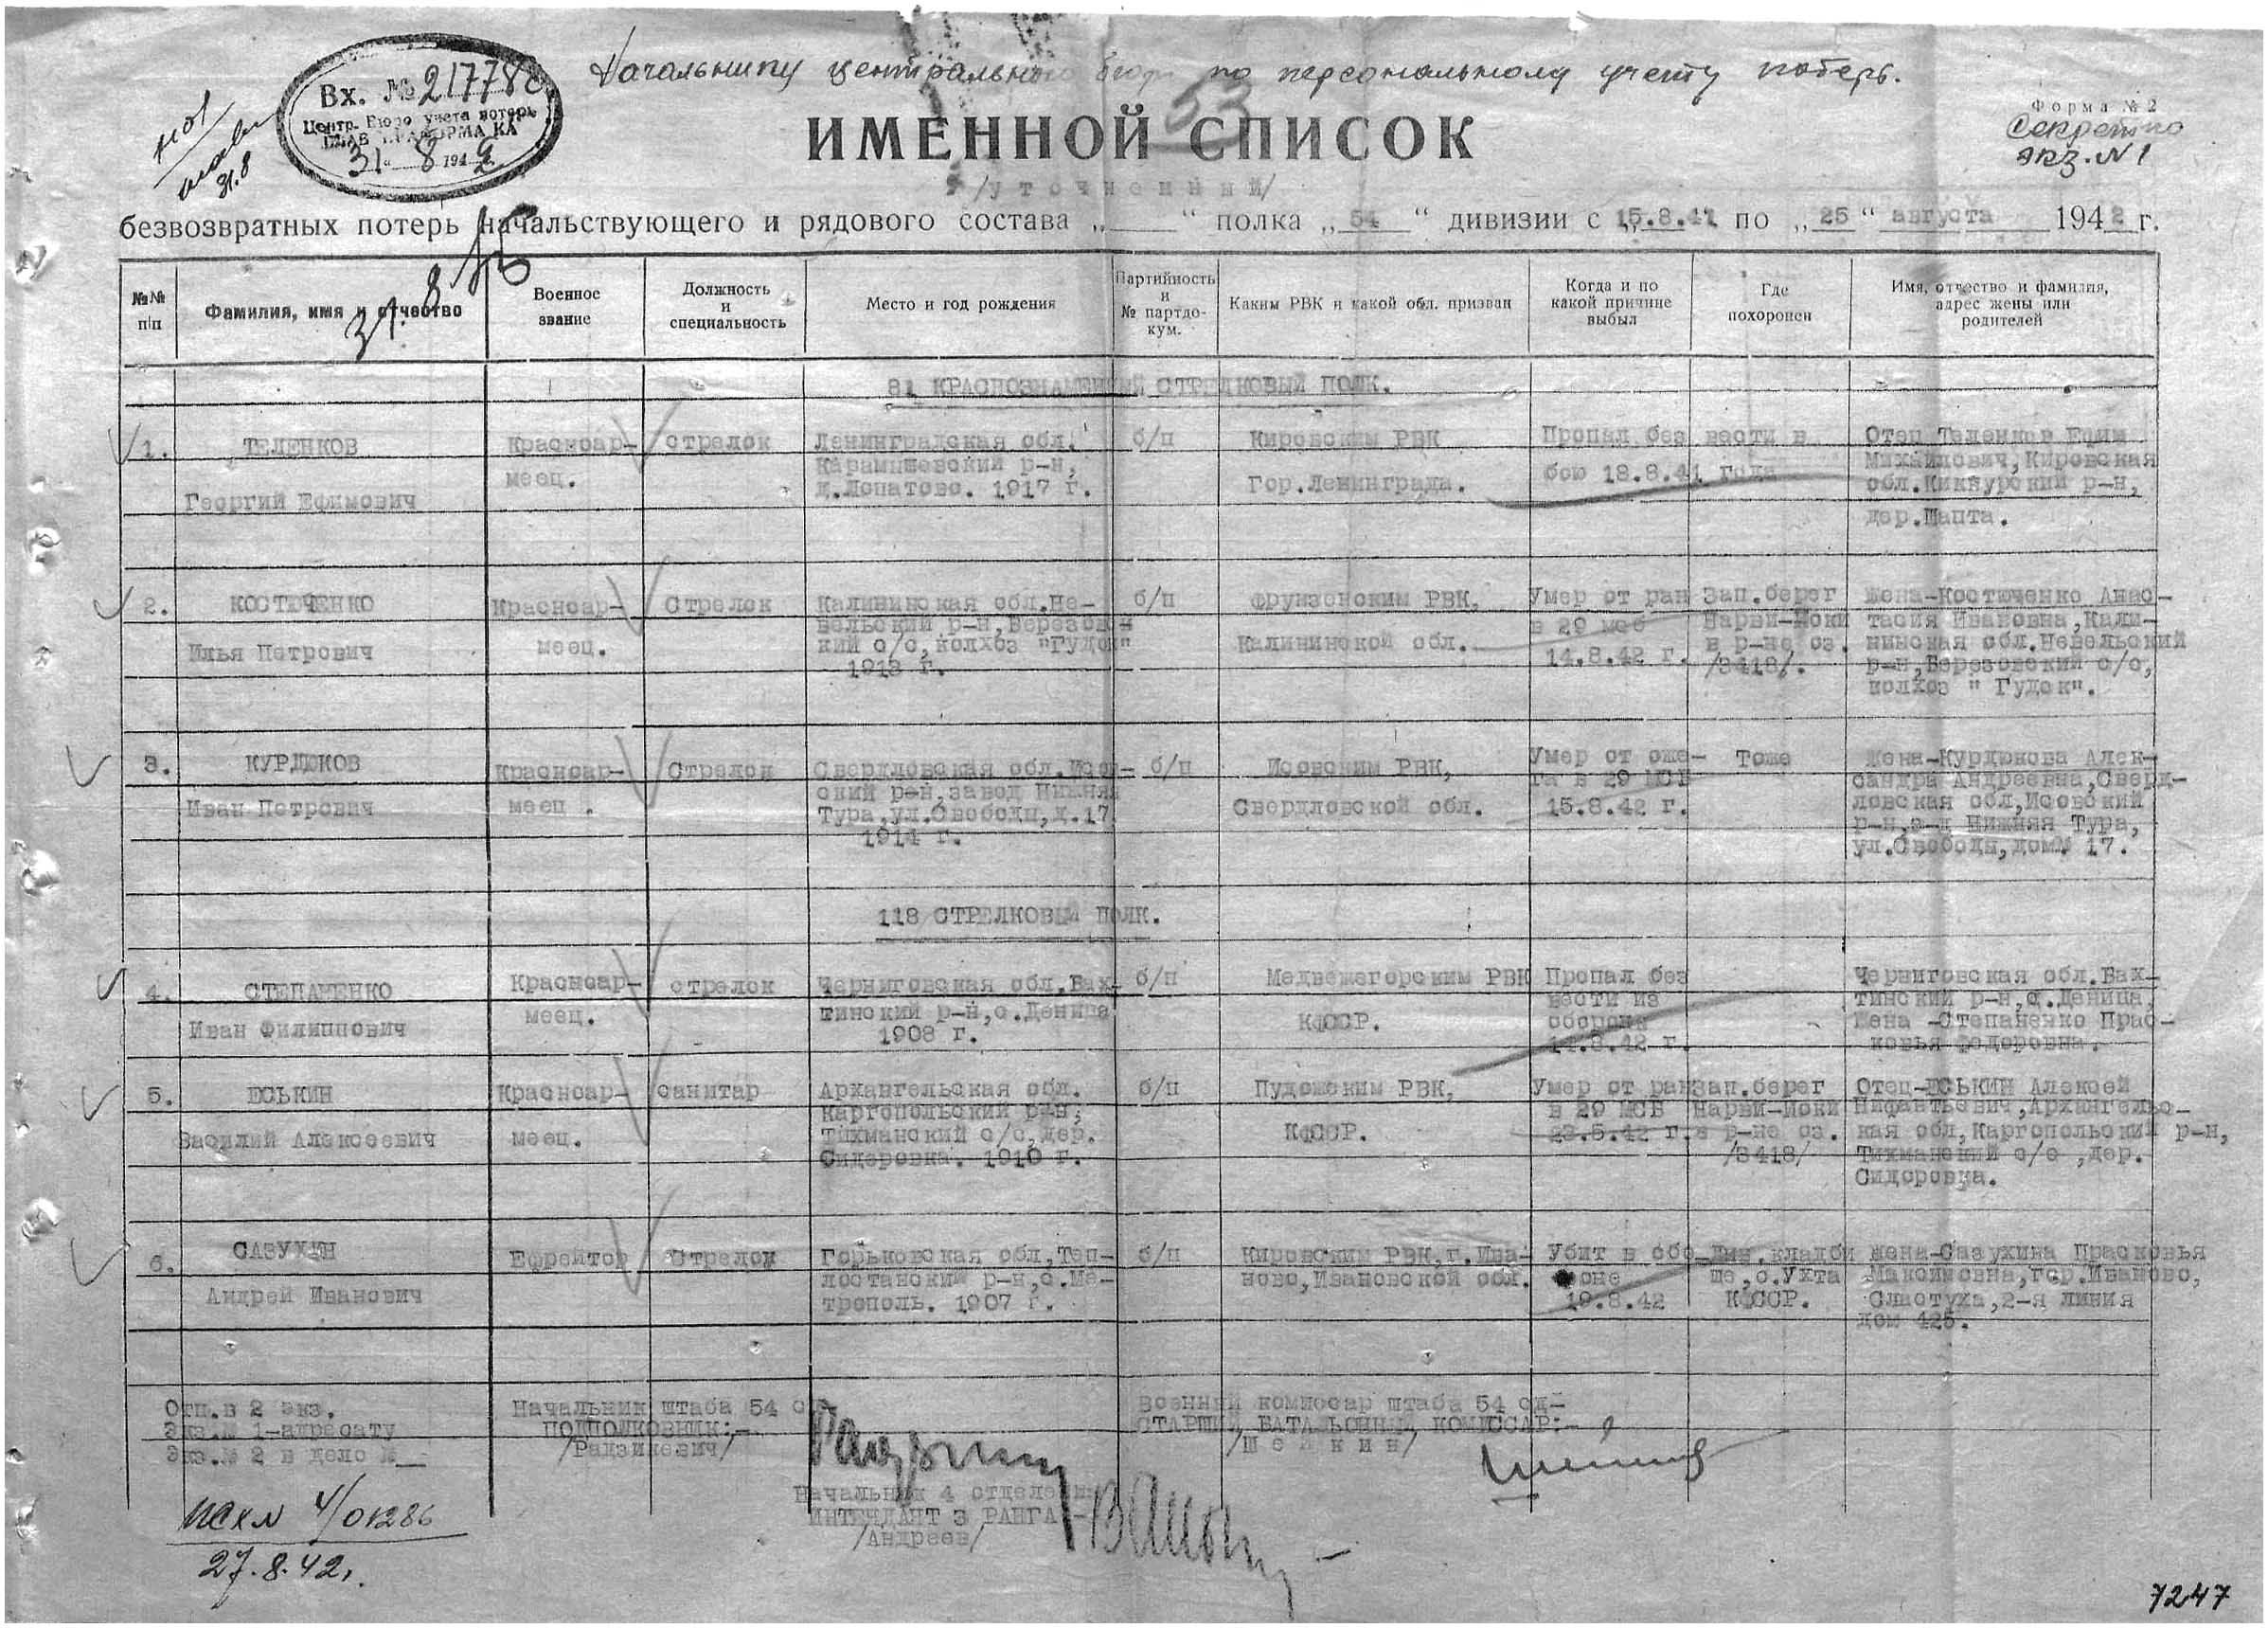 Начальнику центрального бюро по персональному учету потерь.
Вх. № 217780
Центр. Бюро учета потерь
31 8 1942
31.8
53
Форма № 2
Секретно
экз. № 1
ИМЕННОЙ СПИСОК
/уточненный/
безвозвратных потерь начальствующего и рядового состава „ “ полка „ 54 “ дивизии с 15.8.41 по „ 25 “ августа 1942 г.
№№ п/п
Фамилия, имя и отчество
Военное звание
Должность и специальность
Место и год рождения
Партийность и № партдокум.
Каким РВК и какой обл. призван
Когда и по какой причине выбыл
Где похоронен
Имя, отчество и фамилия, адрес жены или родителей
81 КРАСНОЗНАМЕННЫЙ СТРЕЛКОВЫЙ ПОЛК.
1.
ТЕЛЕНКОВ
Георгий Ефимович
Красноар-
меец.
стрелок
Ленинградская обл.
Карамышевский р-н,
д.Лопатово. 1917 г.
б/п
Кировским РВК
Гор.Ленинграда.
Пропал без вести в
бою 18.8.41 года
Отец Теленков Ефим
Михайлович,Кировская
обл.Кикнурский р-н,
дер.Шапта.
2.
КОСТЮЧЕНКО
Илья Петрович
Красноар-
меец.
Стрелок
Калининская обл.Не-
вельский р-н,Березовс-
кий с/с,колхоз "Гудок"
1913 г.
б/п
Фрунзенским РВК,
Калининской обл.
Умер от ран
в 29 мсб
14.8.42 г.
Зап.берег
Нарви-Йоки
в р-не оз.
/3418/.
Жена-Костюченко Анас-
тасия Ивановна,Кали-
нинская обл.Невельский
р-н,Березовский с/с,
колхоз " Гудок".
3.
КУРДЮКОВ
Иван Петрович
Красноар-
меец .
Стрелок
Свердловская обл.Исов-
ский р-н,завод Нижняя
Тура,ул.Свободы,д.17
1914 г.
б/п
Исовским РВК,
Свердловской обл.
Умер от ожо-
га в 29 МСБ
15.8.42 г.
Тоже
Жена-Курдюкова Алек-
сандра Андреевна,Сверд-
ловская обл,Исовский
р-н,з-д Нижняя Тура,
ул.Свободы,дом№ 17.
118 СТРЕЛКОВЫЙ ПОЛК.
4.
СТЕПАНЕНКО
Иван Филиппович
Красноар-
меец.
стрелок
Черниговская обл.Бах-
тинский р-н,с.Деница
1908 г.
б/п
Медвежегорским РВК
КФССР.
Пропал без
вести из
обороны
14.8.42 г.
Черниговская обл.Бах-
тинский р-н,с.Деница,
Жена -Степаненко Прас-
ковья Федоровна.
5.
ЕСЬКИН
Василий Алексеевич
Красноар-
меец.
санитар
Архангельская обл.
Каргопольский р-н,
Тихманский с/с,дер.
Сидоровка. 1910 г.
б/п
Пудожским РВК,
КФССР.
Умер от ран
в 29 МСБ
23.5.42 г.
Зап.берег
Нарви-Йоки
в р-не оз.
/3418/
Отец-ЕСЬКИН Алексей
Нифантьевич,Архангельс-
кая обл,Каргопольский р-н,
Тихманский с/с ,дер.
Сидоровка.
6.
САЗУХИН
Андрей Иванович
Ефрейтор
Стрелок
Горьковская обл,Теп-
лостанский р-н,с.Ме-
трополь. 1907 г.
б/п
Кировским РВК,г.Ива-
ново,Ивановской обл.
Убит в обо-
роне
19.8.42
Див.кладби
ще,с.Ухта
КФССР.
Жена-Сазухина Прасковья
Максимовна,гор.Иваново,
Сластуха,2-я линия
дом 425.
Отп.в 2 экз.
Экз.№ 1-адресату
Экз.№ 2 в дело №__
Начальник штаба 54 с
ПОДПОЛКОВНИК:-
/Радзикевич/
Военный комиссар штаба 54 сд-
СТАРШИЙ БАТАЛЬОННЫЙ КОМИССАР:-
/Ш е й к и н/
Начальник 4 отделения
ИНТЕНДАНТ 3 РАНГА -
/Андреев/
Исх № 4/01286
27.8.42.
7247